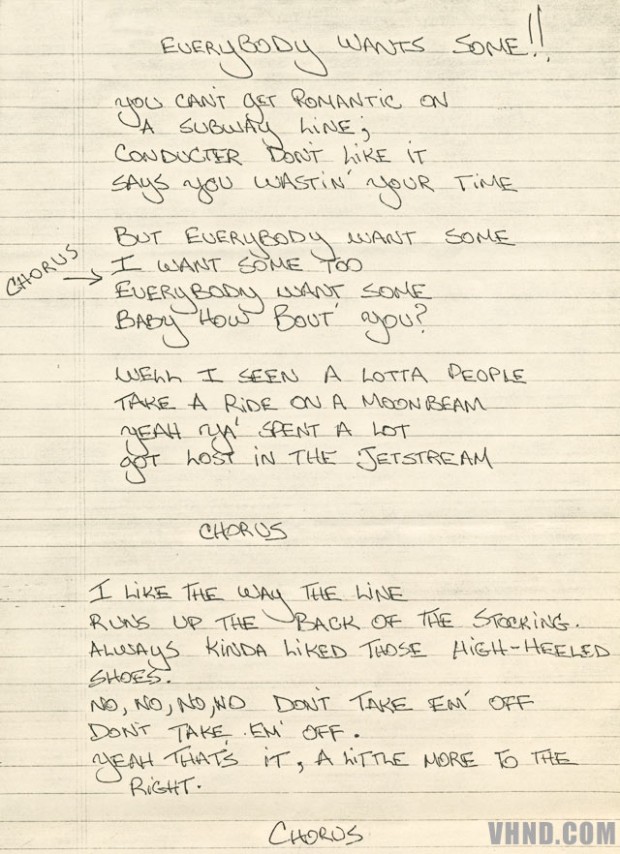 EVERYBODY WANTS SOME!!
YOU CAN'T GET ROMANTIC ON
A SUBWAY LINE;
CONDUCTER DON'T LIKE IT
SAYS YOU WASTIN' YOUR TIME
BUT EVERYBODY WANT SOME
CHORUS → I WANT SOME TOO
EVERYBODY WANT SOME
BABY HOW BOUT' YOU?
WELL I SEEN A LOTTA PEOPLE
TAKE A RIDE ON A MOONBEAM
YEAH YA' SPENT A LOT
GOT LOST IN THE JETSTREAM
CHORUS
I LIKE THE WAY THE LINE
RUNS UP THE BACK OF THE STOCKING.
ALWAYS KINDA LIKED THOSE HIGH-HEELED
SHOES.
NO, NO, NO, NO DON'T TAKE EM' OFF
DON'T TAKE EM' OFF.
YEAH THAT'S IT, A LITTLE MORE TO THE
RIGHT.
CHORUS
VHND.COM